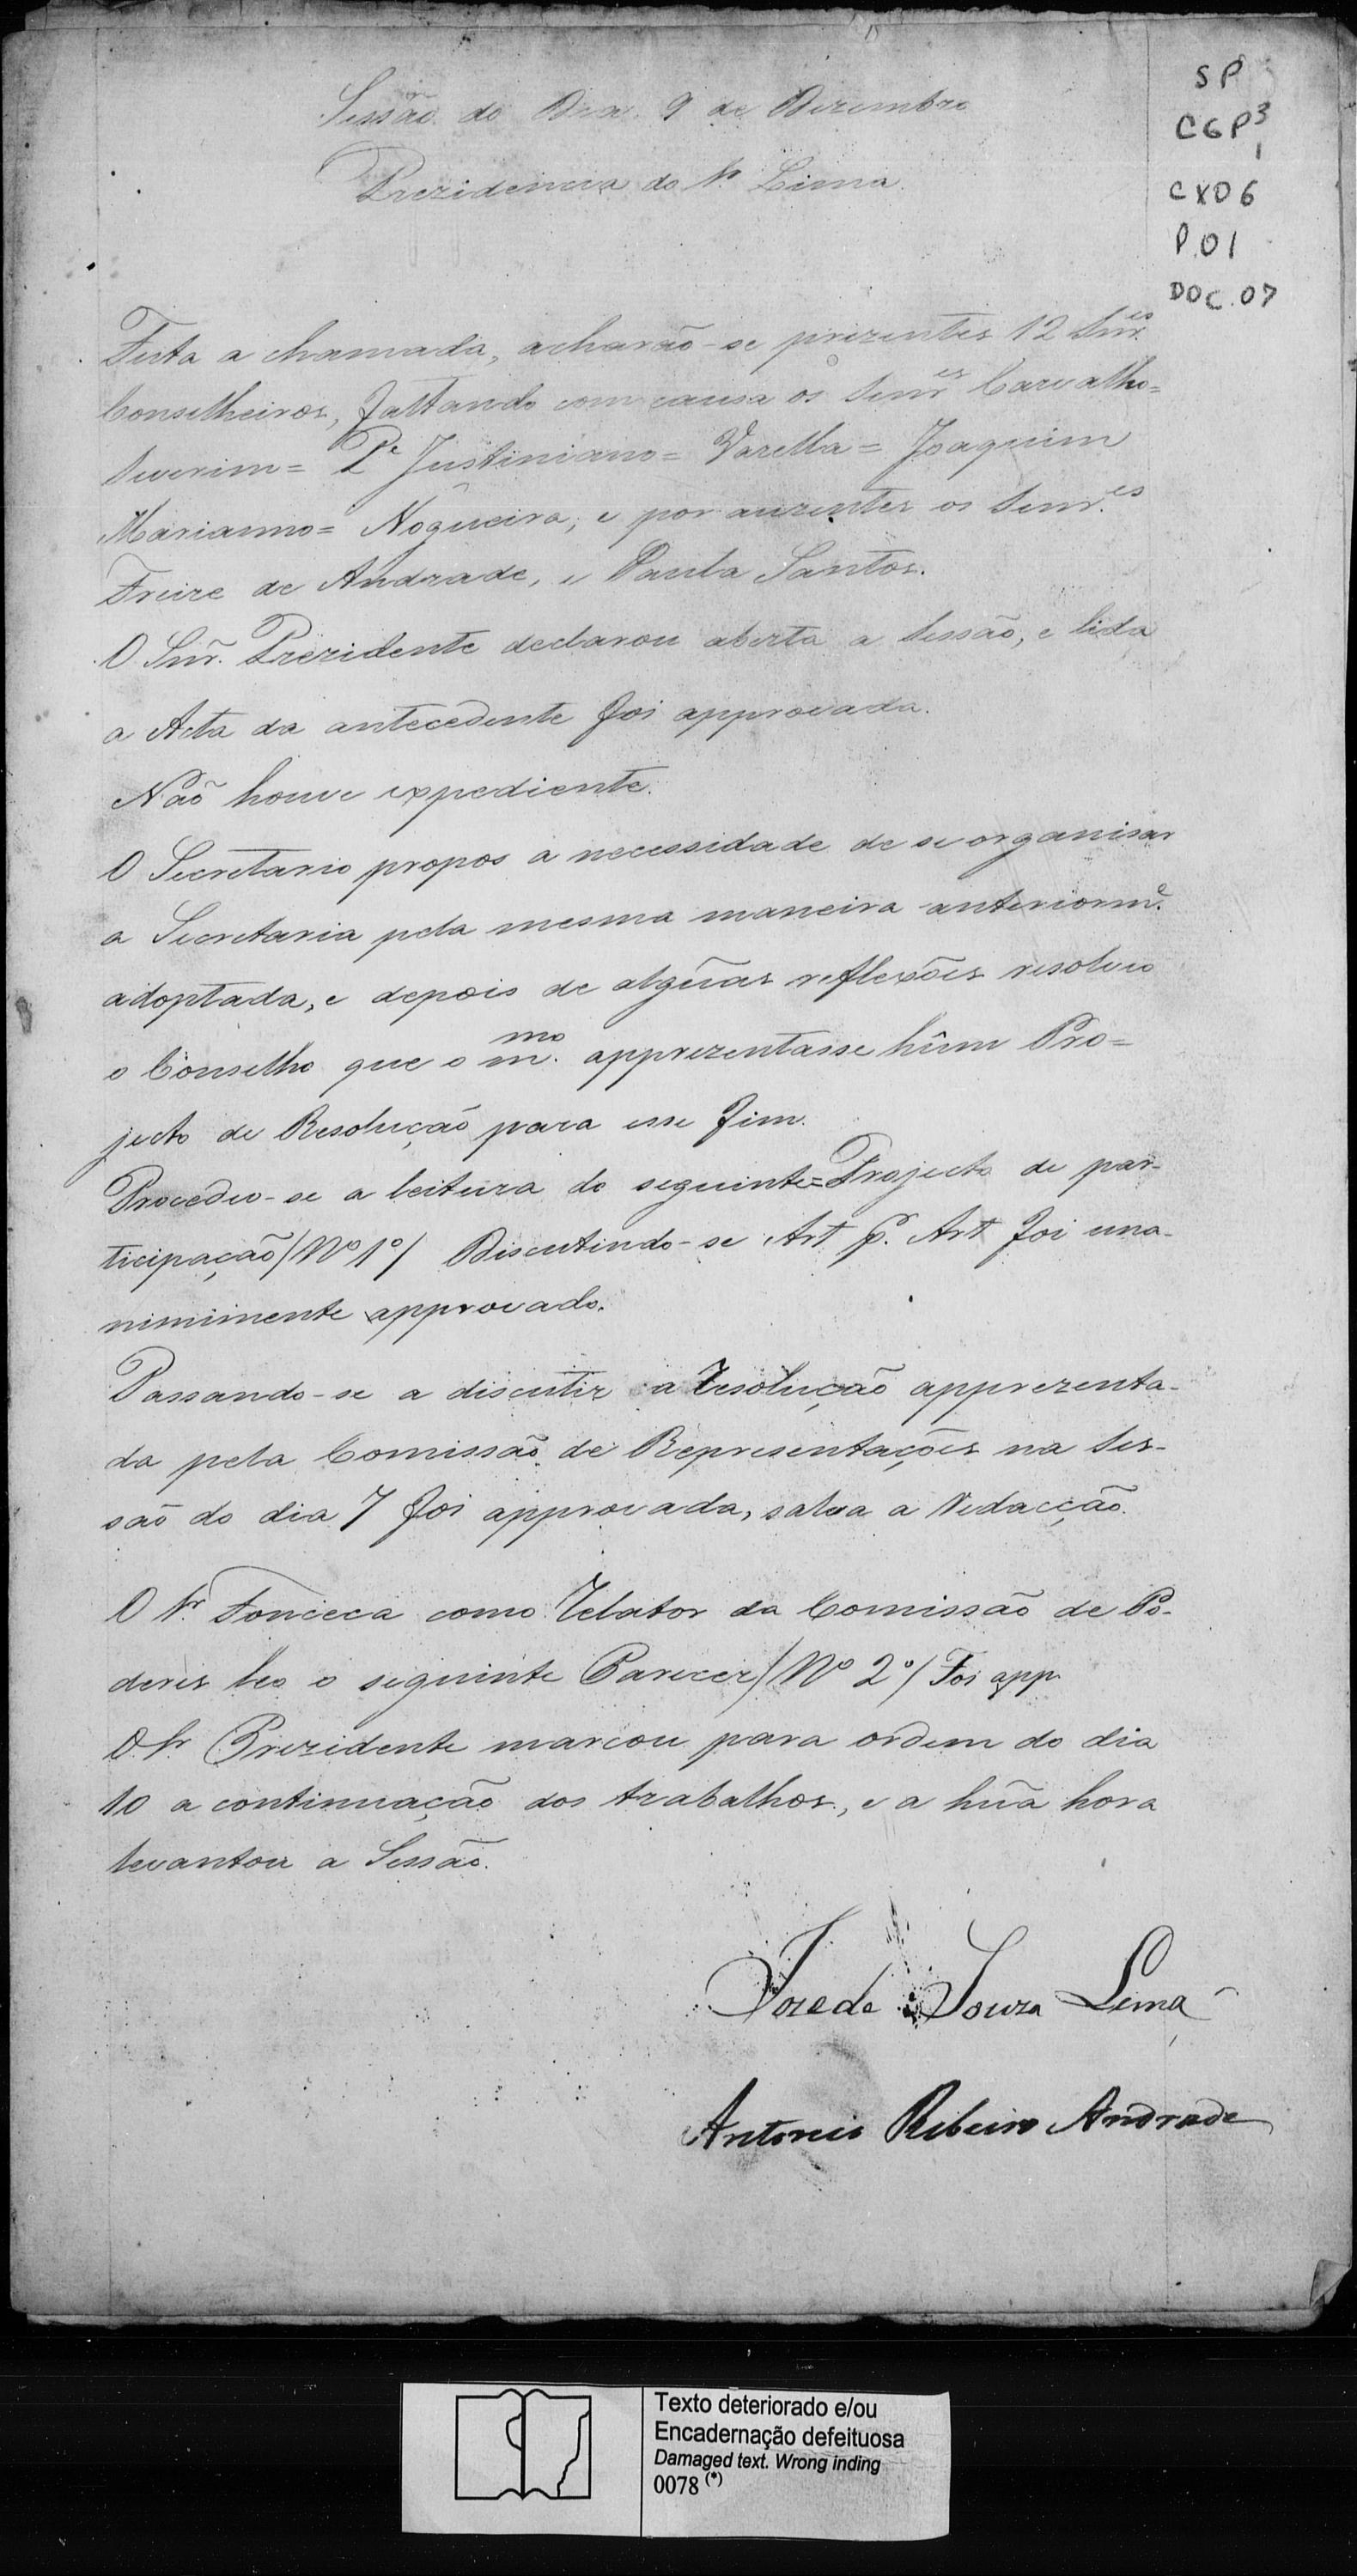 SP
CGP3
1
CX06
P.01
DOC.07
Sessão do Dia 9 de Dezembro
Prezidencia do Sr. Lima.
Feita a chamada, acharão-se prezentes 12 Snr.es
Conselheiros, faltando com causa os Senr.es Carvalho=
Severim= Pe Justiniano= Varella= Joaquim
Marianno= Nogueira; e por auzentes os Senr.es
Freire de Andrade, e Paula Santos.
O Snr. Prezidente declarou aberta a Sessão, e lida
a Acta da antecedente foi approvada.
Não houve expediente.
O Secretario propos a necessidade de se organisar
a Secretaria pela mesma maneira anteriorm.e
adoptada, e depois de algũas reflexões resolveo
o Conselho que o m.mo apprezentasse hũm Pro=
jecto de Resolução para esse fim.
Procedeo-se a leitura do seguinte=Projecto de par-
ticipação/Nº 1º/ Discutindo-se Art p. Art foi una-
nimimente approvado.
Passando-se a discutir a Resolução apprezenta-
da pela Comissão de Representações na Ses-
são do dia 7 foi approvada, salva a Redacção.
O Sr. Fonceca como Relator da Comissão de Po-
deres leo o seguinte Parecer/Nº 2º/ Foi app.
O Sr. Prezidente marcou para ordem do dia
10 a continuação dos trabalhos, e a hũa hora
levantou a Sessão.
Joze de Souza Lima
Antonio Ribeiro Andrade
Texto deteriorado e/ou
Encadernação defeituosa
Damaged text. Wrong inding
0078 (*)